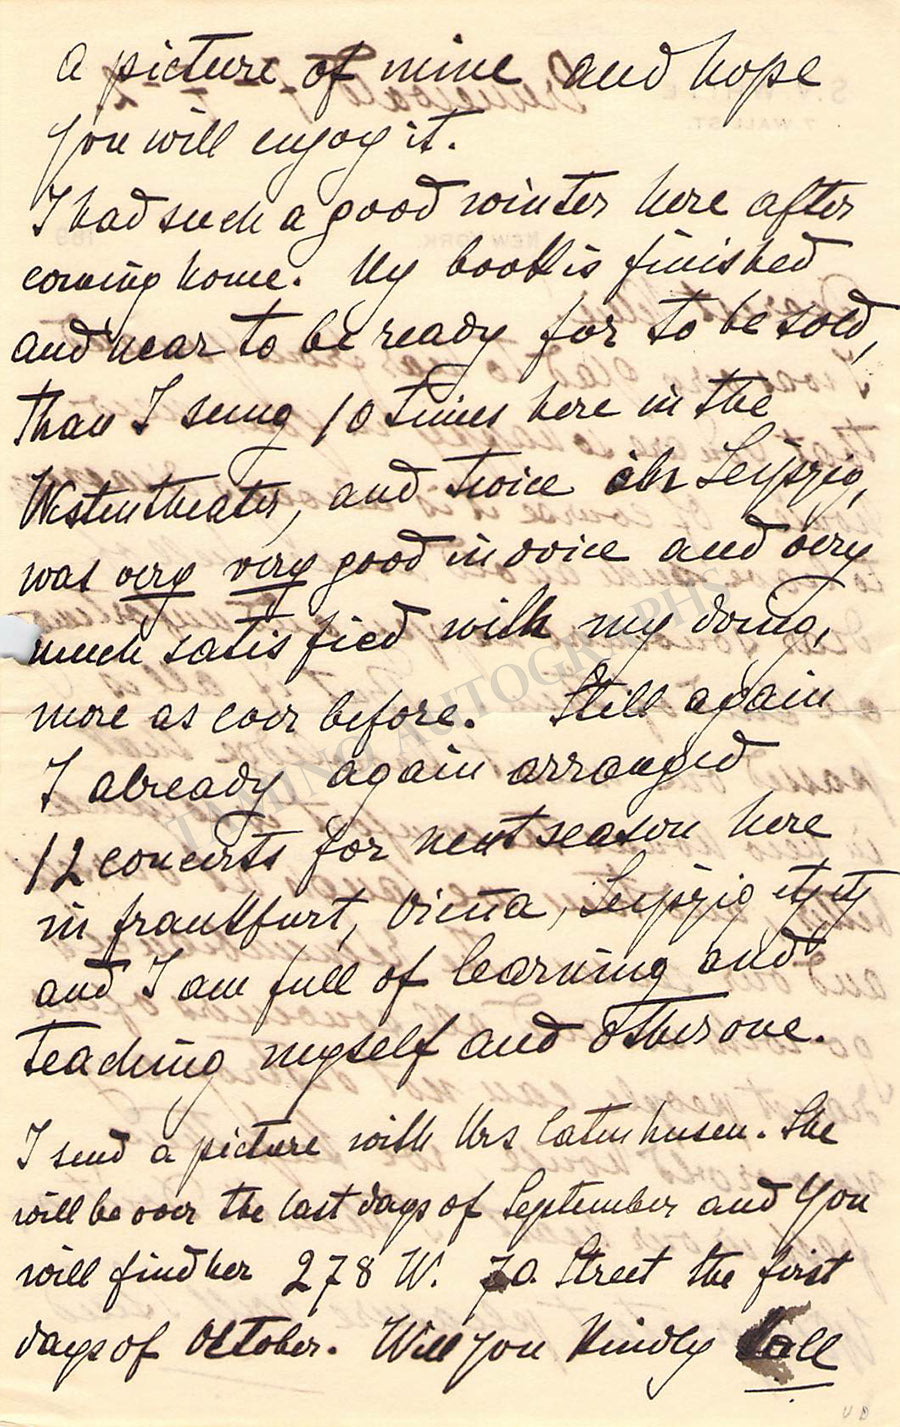 a picture of mine and hope
you will enjoy it.
I had such a good winter here after
coming home. My book is finished
and near to be ready for to be sold,
than I sung 10 times here in the
Westentheater, and twice in Leipzig,
was very very good in voice and very
much satisfied with my doing,
more as ever before. Still again
I already again arranged
12 concerts for next season here
in Frankfurt, Vienna, Leipzig
and I am full of learning and
teaching myself and otherone.
I send a picture with Mrs Catenhusen. She
will be over the last days of September and you
will find her 278 W. 70. Street the first
days of October. Will you kindly call
TAMINO AUTOGRAPHS